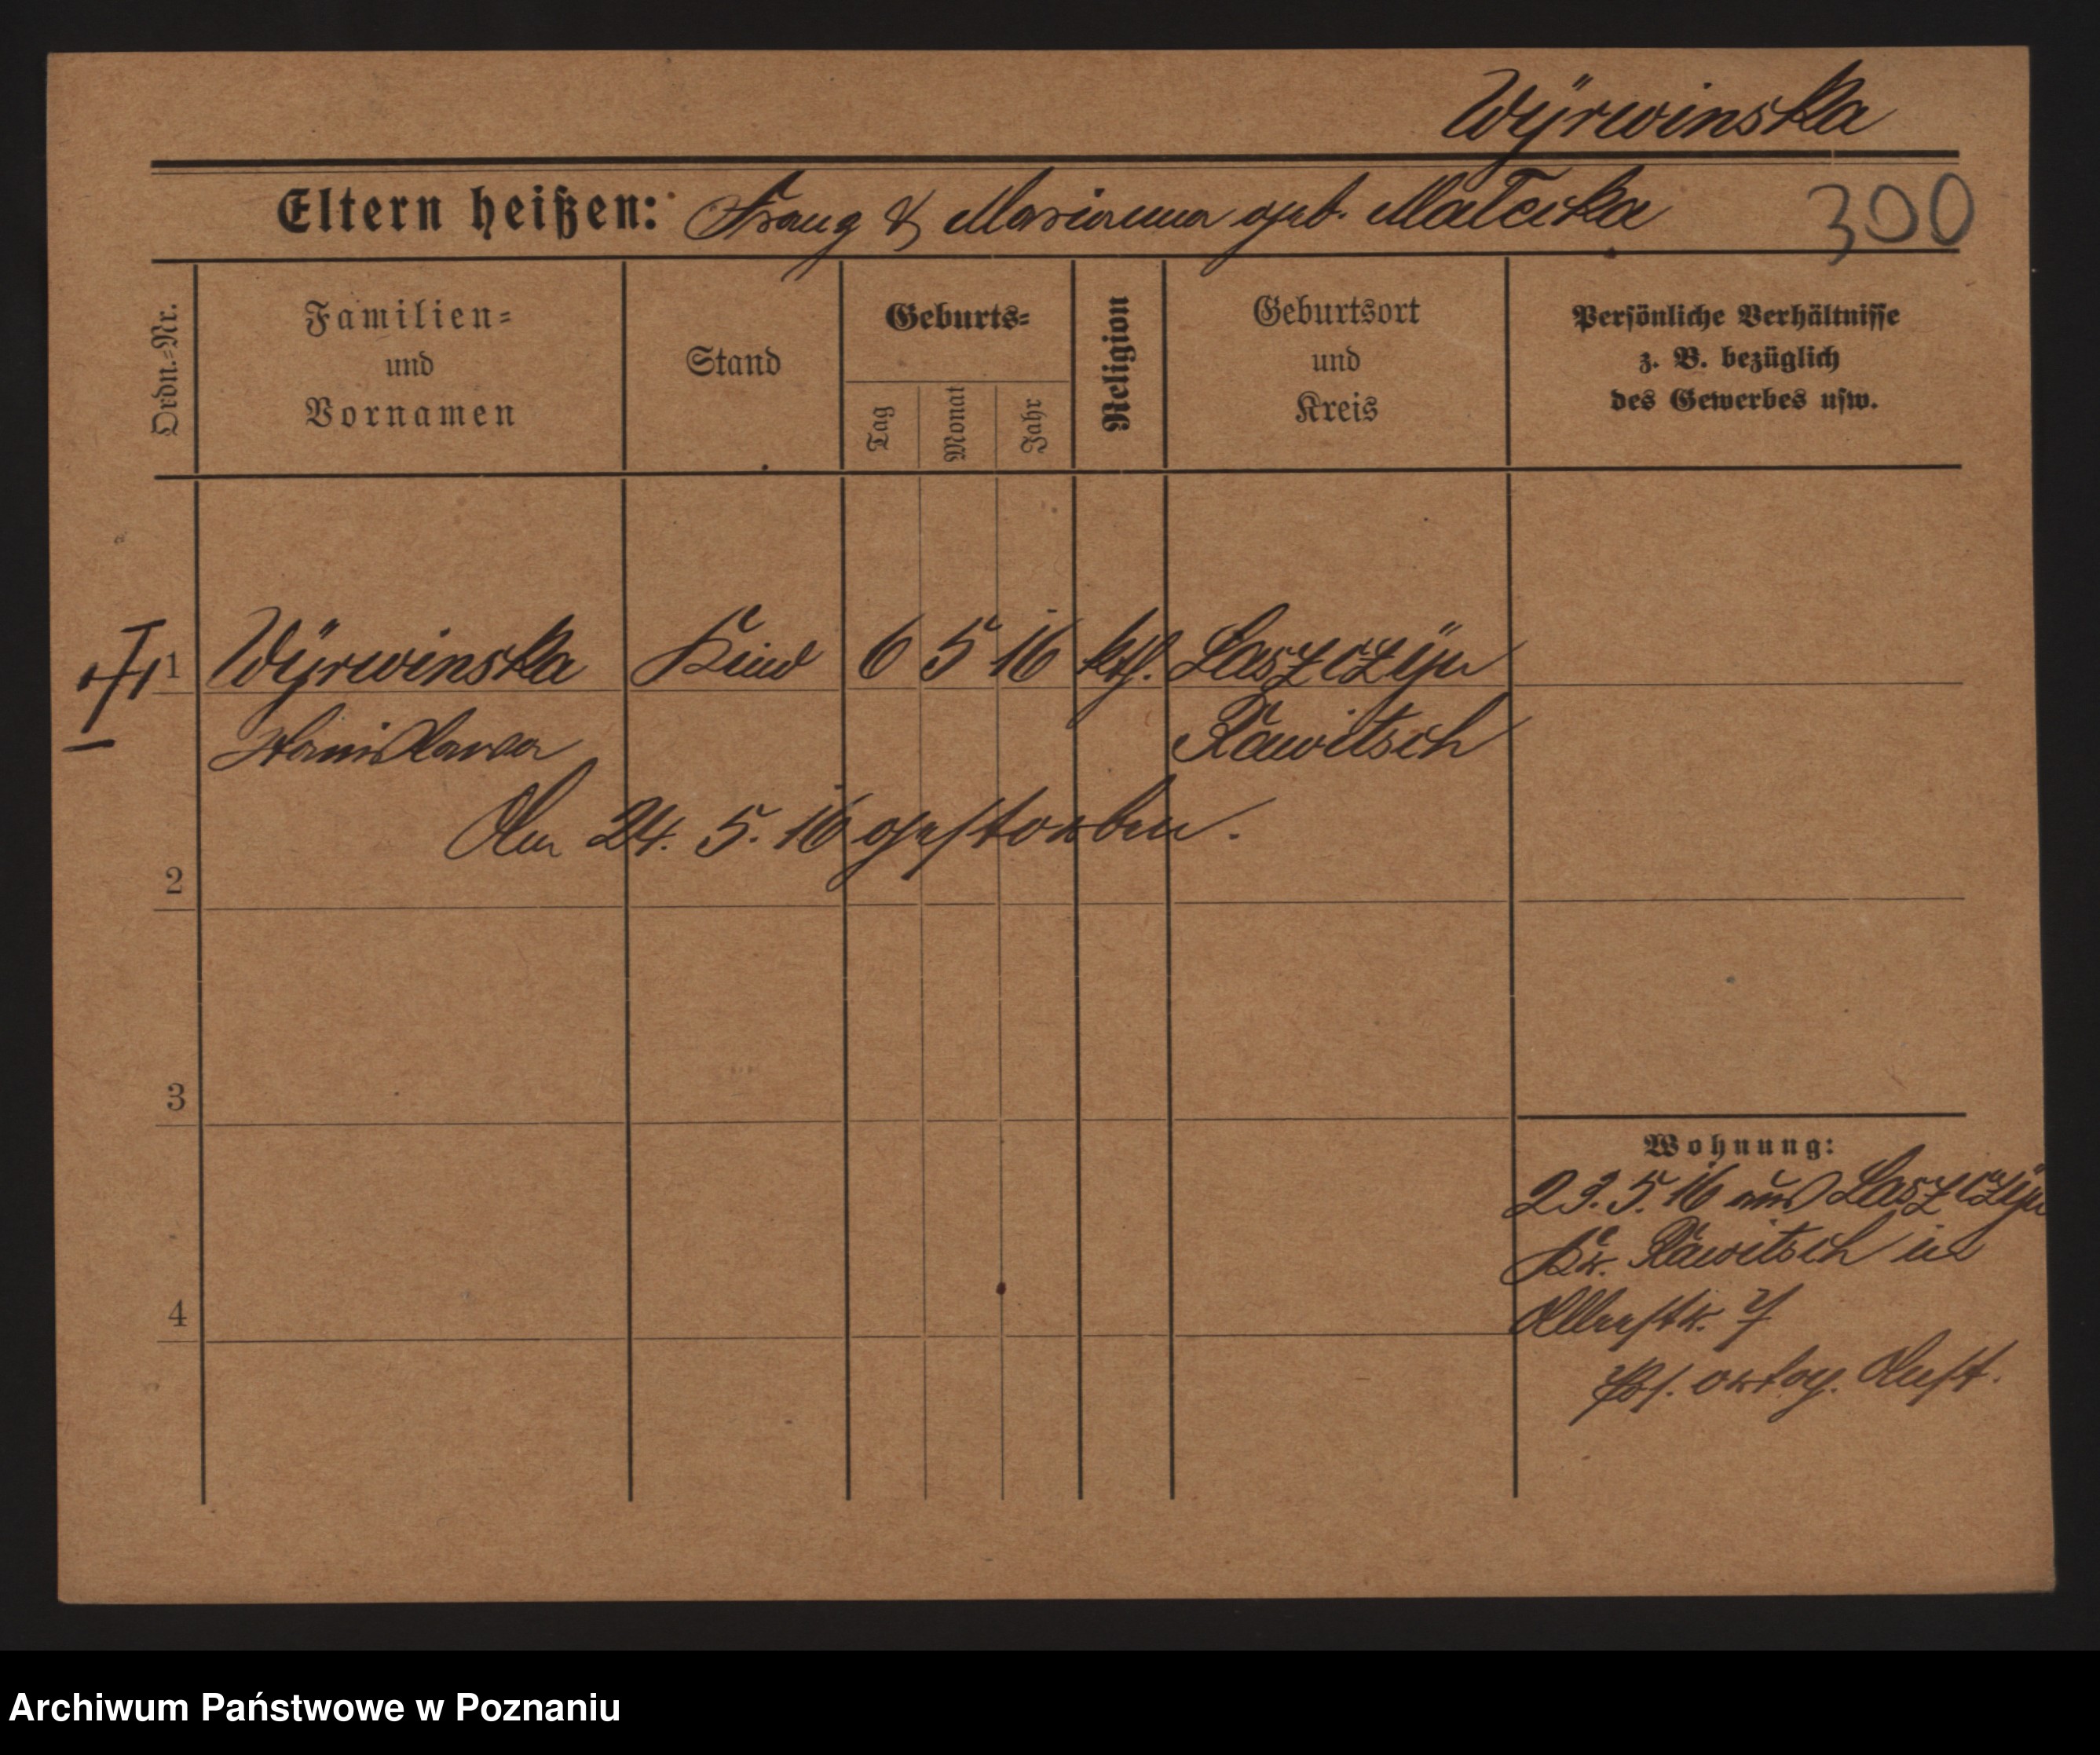 Wÿrwinska
Eltern heißen: Franz & Marianna geb. Matecka 300
Ordn.=Nr.
Familien=
und
Vornamen
Stand
Geburts=
Tag
Monat
Jahr
Religion
Geburtsort
und
Kreis
Persönliche Verhältnisse
z. B. bezüglich
des Gewerbes usw.
1 Wÿrwinska Kind 6 5 16 kth. Laszczÿn
Stanislawa Rawitsch
Am 24. 5. 16 gestorben.
2
3
4
Wohnung:
23. 5. 16 aus Laszczÿn
Kr. Rawitsch in
7
Archiwum Państwowe w Poznaniu